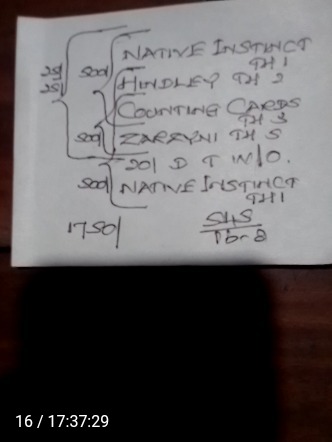 NATIVE INSTINCT
TH 1
500/
HINDLEY TH 2
COUNTING CARDS
TH 3
500/
ZARRYNI TH 5
201 D T W/O.
500/
NATIVE INSTINCT
TH 1
1750/
16 / 17:37:29